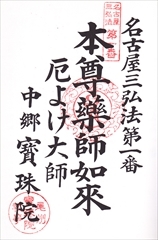 名古屋三弘法第一番
本尊藥師如來
厄よけ大師
中郷寳珠院
名古屋
三弘法
第一番